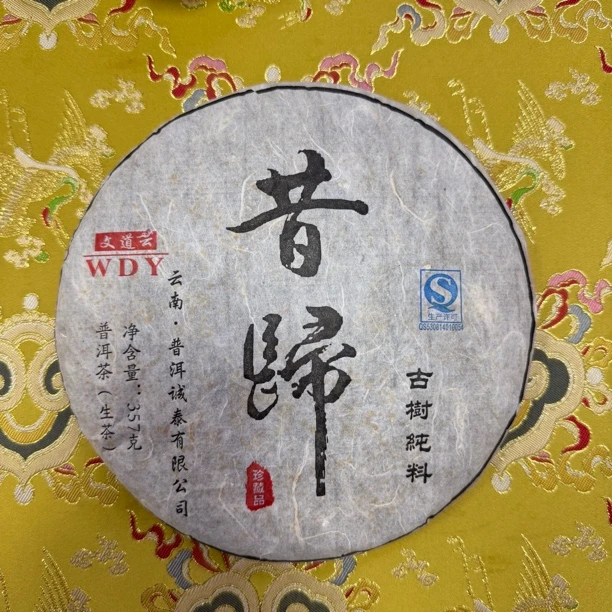 昔歸
文道云
WDY
云南·普洱诚泰有限公司
净含量：357克
普洱茶（生茶）
生产许可
QS530814010054
古樹純料
珍藏品